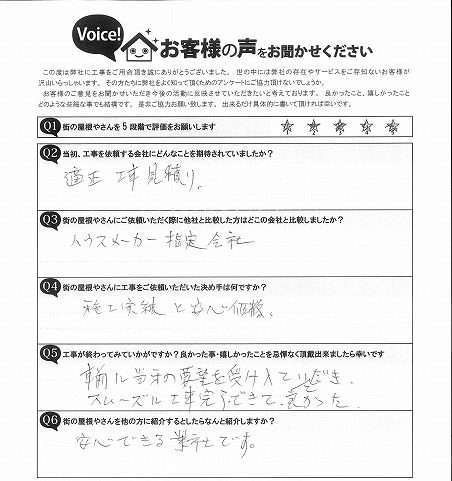 Voice!
お客様の声をお聞かせください
この度は弊社に工事をご用命頂き誠にありがとうございました。世の中には弊社の存在やサービスをご存知ないお客様が
沢山いらっしゃいます。その方たちに弊社をよく知って頂くためのアンケートにご協力頂けないでしょうか。
お客様のご意見をお聞かせいただき今後の活動に反映させていただきたいと考えております。良かったこと、嬉しかったこと
どのような些細な事でも結構です。是非ご協力お願い致します。出来るだけ具体的に書いて頂ければ幸いです。
Q1 街の屋根やさんを5段階で評価をお願いします ☆ ☆ ☆ ☆ ☆
Q2 当初、工事を依頼する会社にどんなことを期待されていましたか？
適正 工事見積り。
Q3 街の屋根やさんにご依頼いただく際に他社と比較した方はどこの会社と比較しましたか？
ハウスメーカー指定会社
Q4 街の屋根やさんに工事をご依頼いただいた決め手は何ですか？
施工実績と安心価格。
Q5 工事が終わってみていかがですか？良かった事・嬉しかったことを忌憚なく頂戴出来ましたら幸いです
当方の要望を受け入れていただき、
スムーズに工事完了できて、良かった。
Q6 街の屋根やさんを他の方に紹介するとしたらなんと紹介しますか？
安心できる業社です。